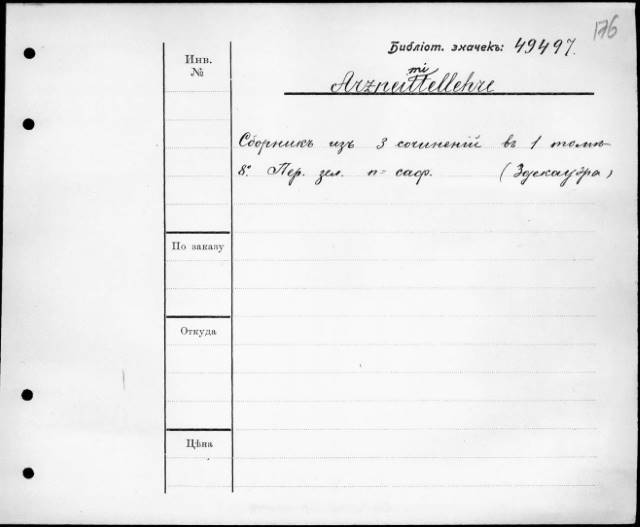 176
Библіот. значекъ: 49497.
Инв.
№
Arzneimittellehre
Сборникъ изъ 3 сочиненій въ 1 томѣ
8º. Пер. зел. п= саф. (Здекауера)
По заказу
Откуда
Цѣна